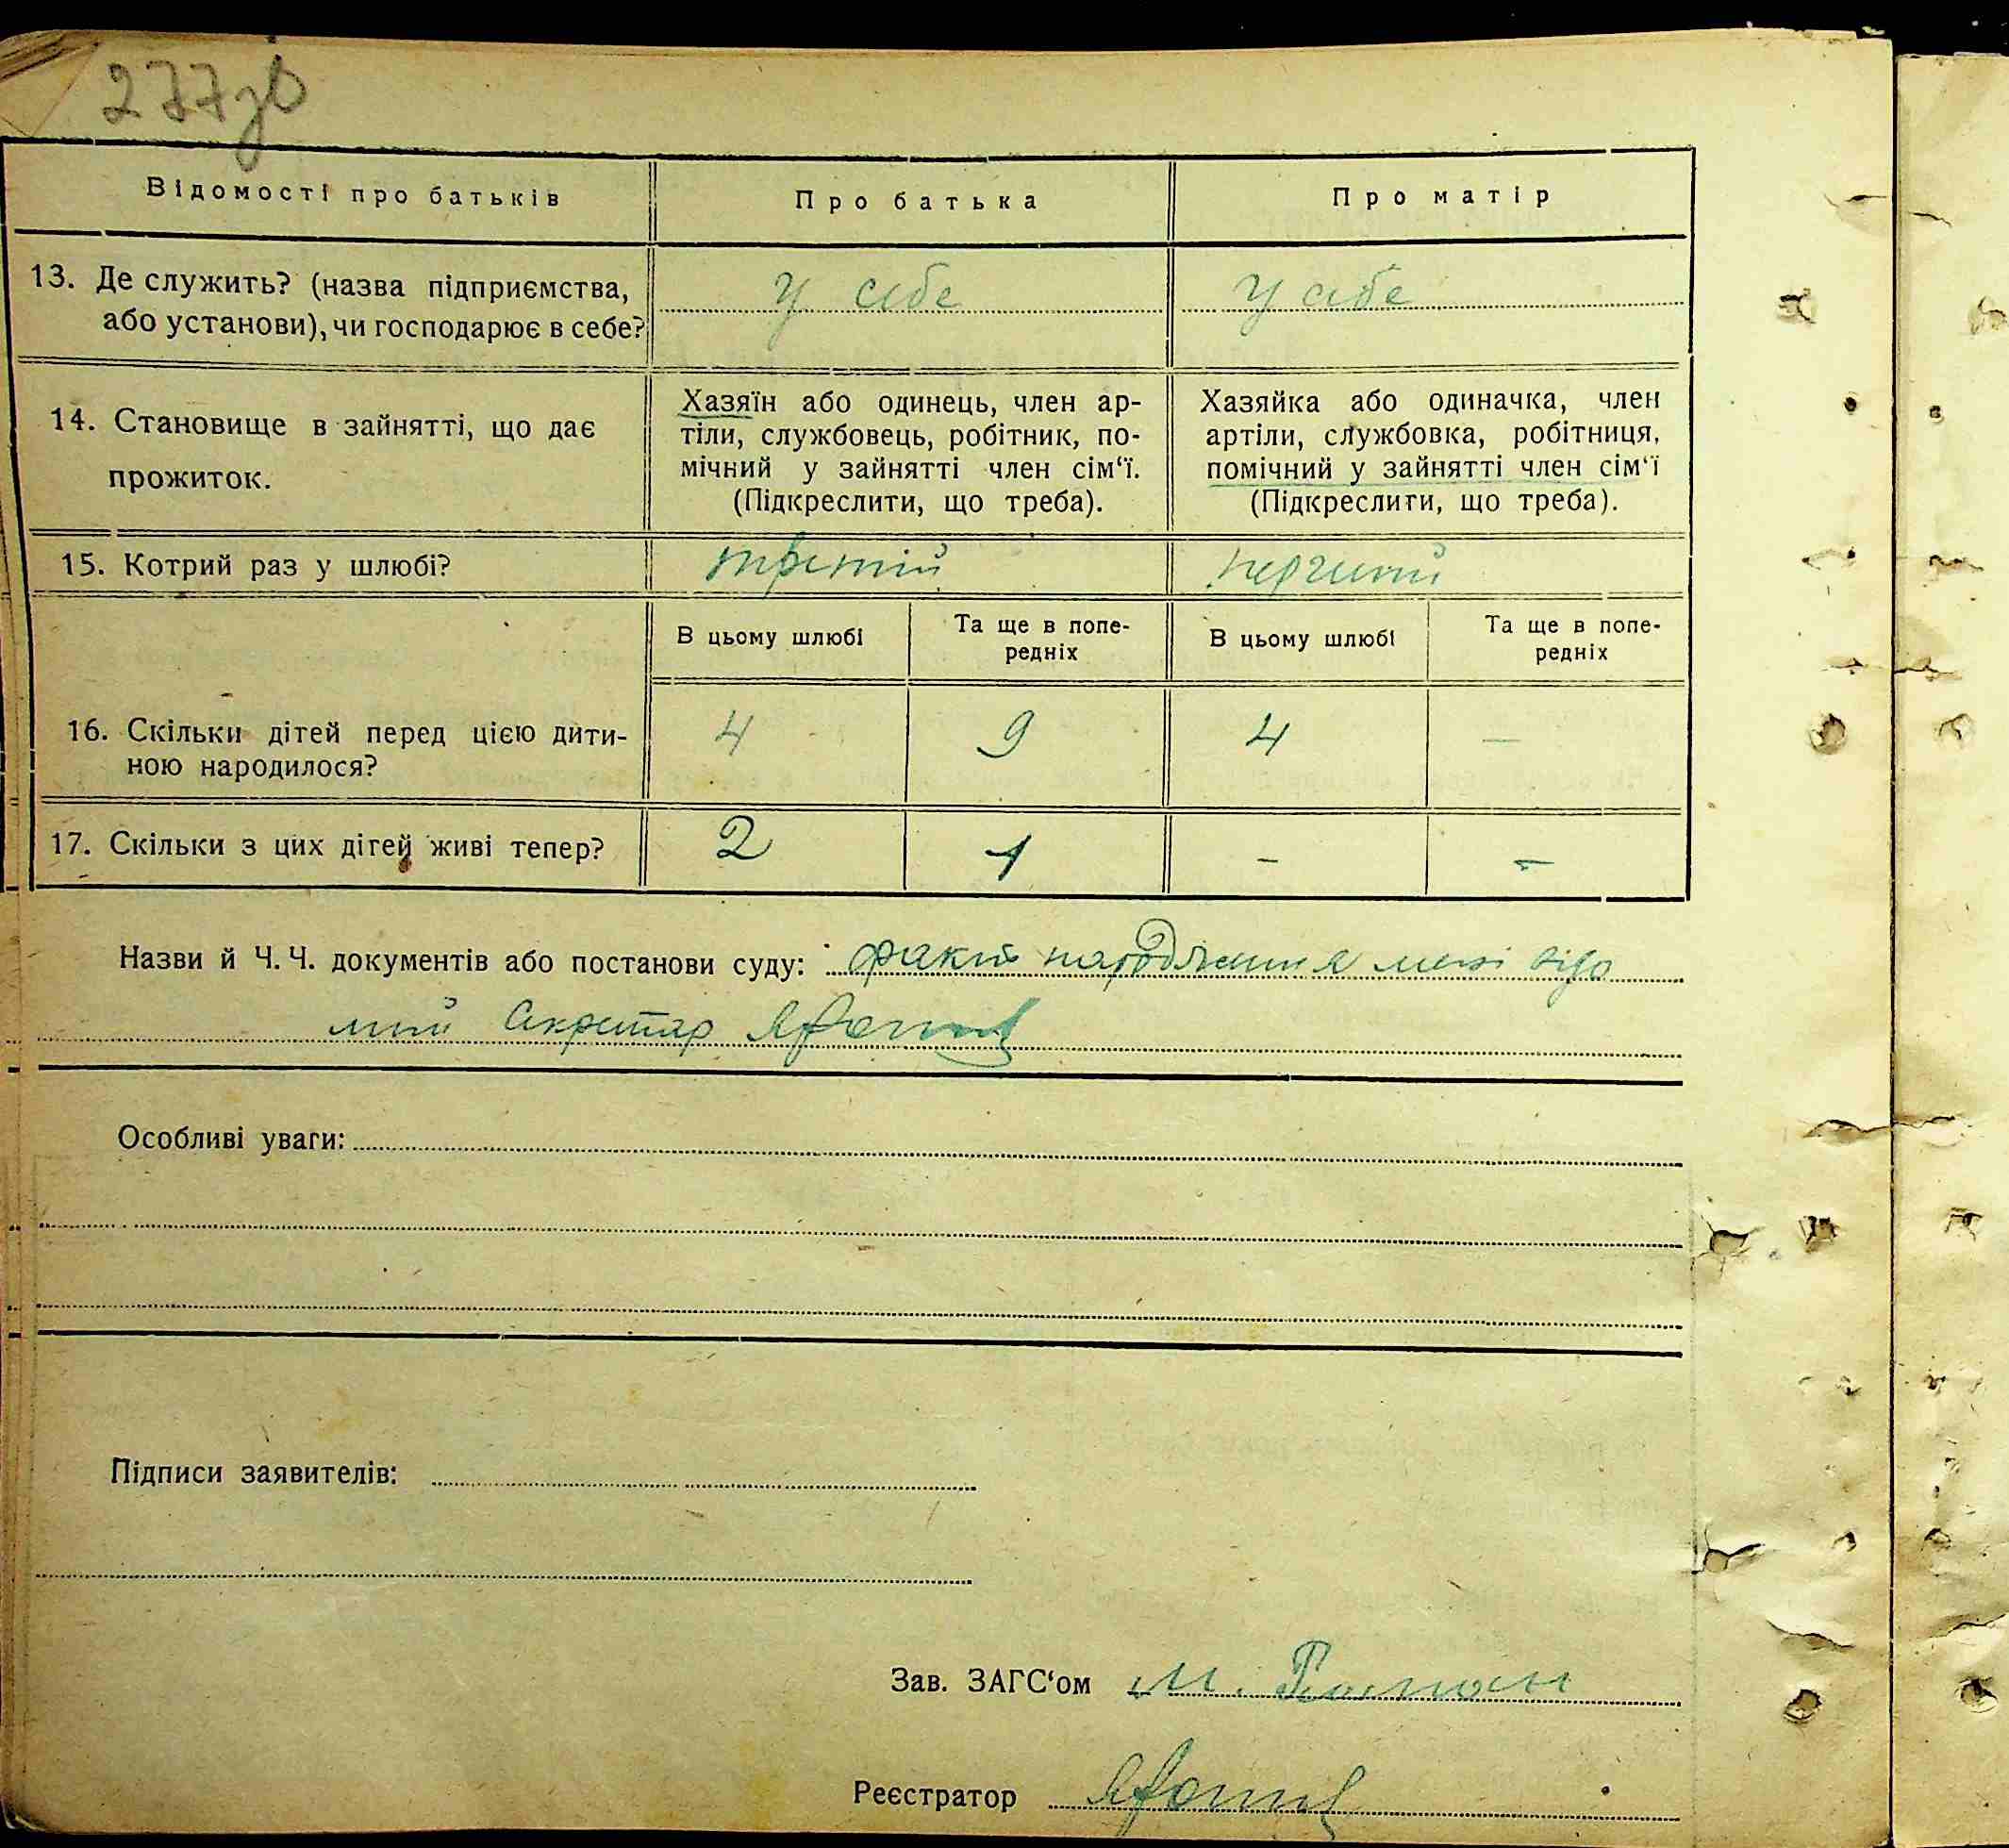 277зв
Відомості про батьків
Про батька
Про матір
13. Де служить? (назва підприємства,
або установи), чи господарює в себе?
у себе
у себе
14. Становище в зайнятті, що дає
прожиток.
Хазяїн або одинець, член ар-
тіли, службовець, робітник, по-
мічний у зайнятті член сім‘ї.
(Підкреслити, що треба).
Хазяйка або одиначка, член
артіли, службовка, робітниця,
помічний у зайнятті член сім‘ї
(Підкреслити, що треба).
15. Котрий раз у шлюбі?
третій
перший
В цьому шлюбі
Та ще в попе-
редніх
В цьому шлюбі
Та ще в попе-
редніх
16. Скільки дітей перед цією дити-
ною народилося?
4
9
4
—
17. Скільки з цих дітей живі тепер?
2
1
-
-
Назви й Ч. Ч. документів або постанови суду: факт народження мені відо
мий Секретар
Особливі уваги:
Підписи заявителів:
Зав. ЗАГС‘ом М.
Реєстратор